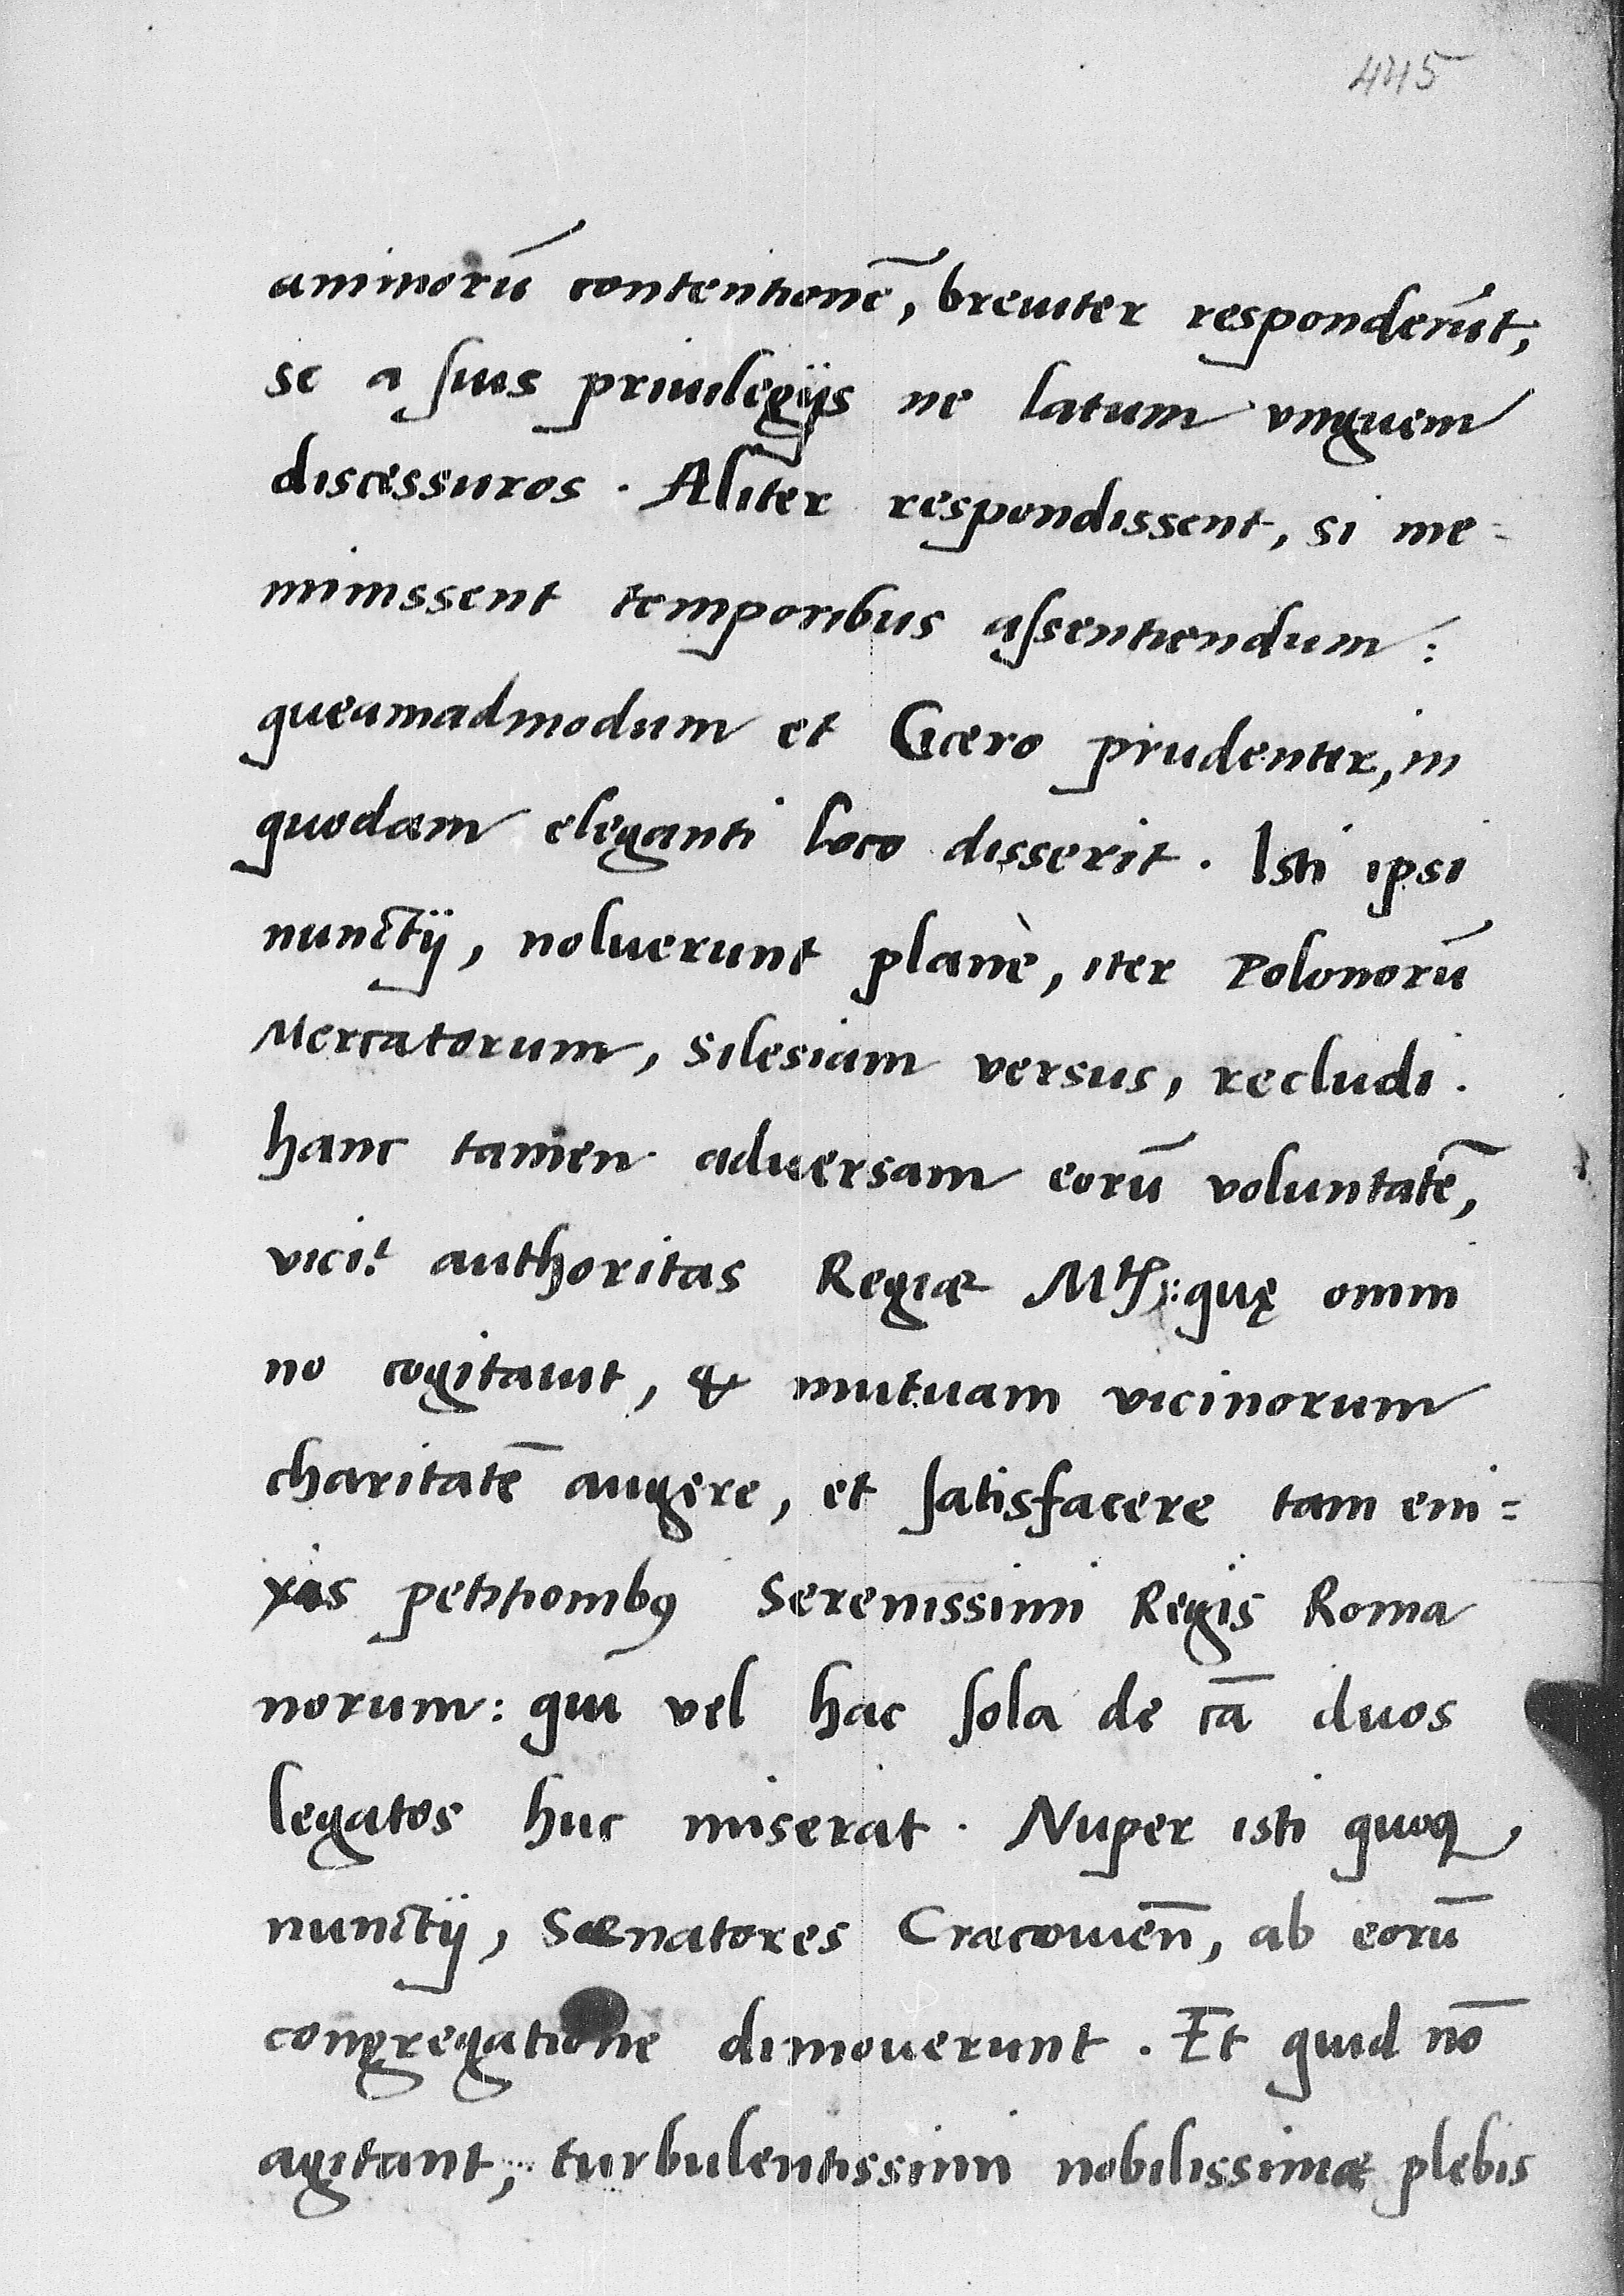 445
animorū contentionē, breuiter responderūt,
se a suis priuilegijs ne latum vnguem
discessuros. Aliter respondissent, si me-
minissent temporibus assentiendum:
queamadmodum et Cicero prudenter, in
quodam eleganti loco disserit. Isti ipsi
nunctij, noluerunt planè, iter Polonorū
Mercatorum, Silesiam versus, recludi.
hanc tamen aduersam eorū voluntatē,
vicit authoritas Regiae Mtis: quę omni
no cogitauit, & mutuam vicinorum
charitatē augere, et satisfacere tam eni=
xis petitionibꝰ Serenissimi Regis Roma
norum: qui vel hac sola de cā duos
legatos huc miserat. Nuper isti quoqꝫ,
nunctij, Saenatores Cracouien̄, ab eorū
congregatione dimouerunt. Et quid nō
agitant, turbulentissimi nobilissimae plebis